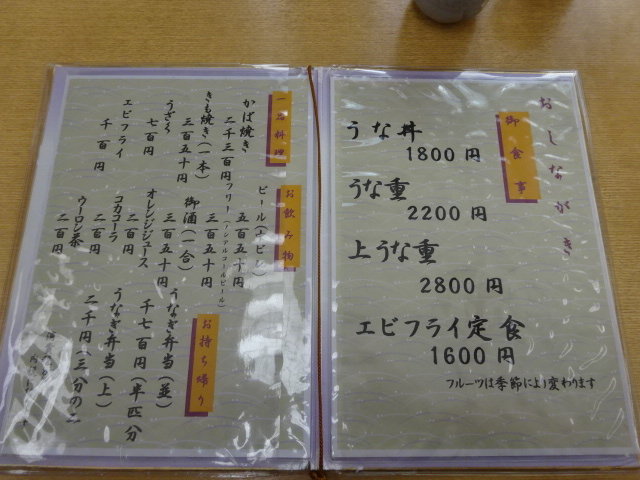 おしながき
御食事
うな丼
1800円
うな重
2200円
上うな重
2800円
エビフライ定食
1600円
フルーツは季節により変わります
一品料理
かば焼き
二千三百円
きも焼き(一本)
三百五十円
うざく
七百円
エビフライ
千百円
お飲み物
ビール
五百五十円
フリー(ノンアルコールビール)
三百五十円
御酒(一合)
三百五十円
オレンジジュース
二百円
コカコーラ
二百円
ウーロン茶
二百円
お持ち帰り
うなぎ弁当(並)
千七百円(半匹分
うなぎ弁当(上)
二千円(三分の二